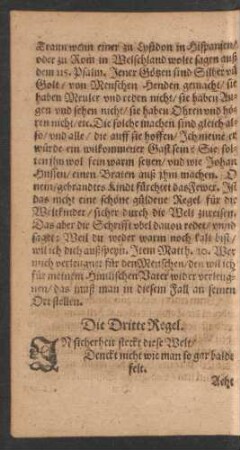 Traun wenn einer zu Lysidon in Hispanien/
oder zu Rom in Welschland wolte sagen auß
dem 115. Psalm. Jener Götzen sind Silber uñ
Golt/ von Menschen Henden gemacht/ sie
haben Meuler vnd reden nicht/ sie haben Au-
gen vnd sehen nicht/ sie haben Ohren vnd hö-
ren nicht/ etc. Die solche machen sind gleich al-
so/ vnd alle/ die auff sie hoffen/ Ich meine er
würde ein wilkommener Gast sein: Sie sol-
ten jhm wol sein warm seyen/ vnd wie Johan
Hussen/ einen Braten auß jhm machen. O
nein/ gebrandtes Kindt fürchtet das Fewer. Ist
das nicht eine schöne güldene Regel für die
Weltkinder/ sicher durch die Welt zureisen.
Das aber die Schrifft vbel dauon redet/ vnnd
sagte: Weil du weder warm noch kalt bist/
wil ich dich außspeyen. Item Matth. 10. Wer
mich verleugnet für den Menschen/ den wil ich
für meinem Himlischen Vater wider verleug-
nen/ das muß man in diesem Fall an seinen
Ort stellen.
Die Dritte Regel.
AN sicherheit steckt diese Welt/
Denckt nicht wie man so gar balde
felt.
Acht